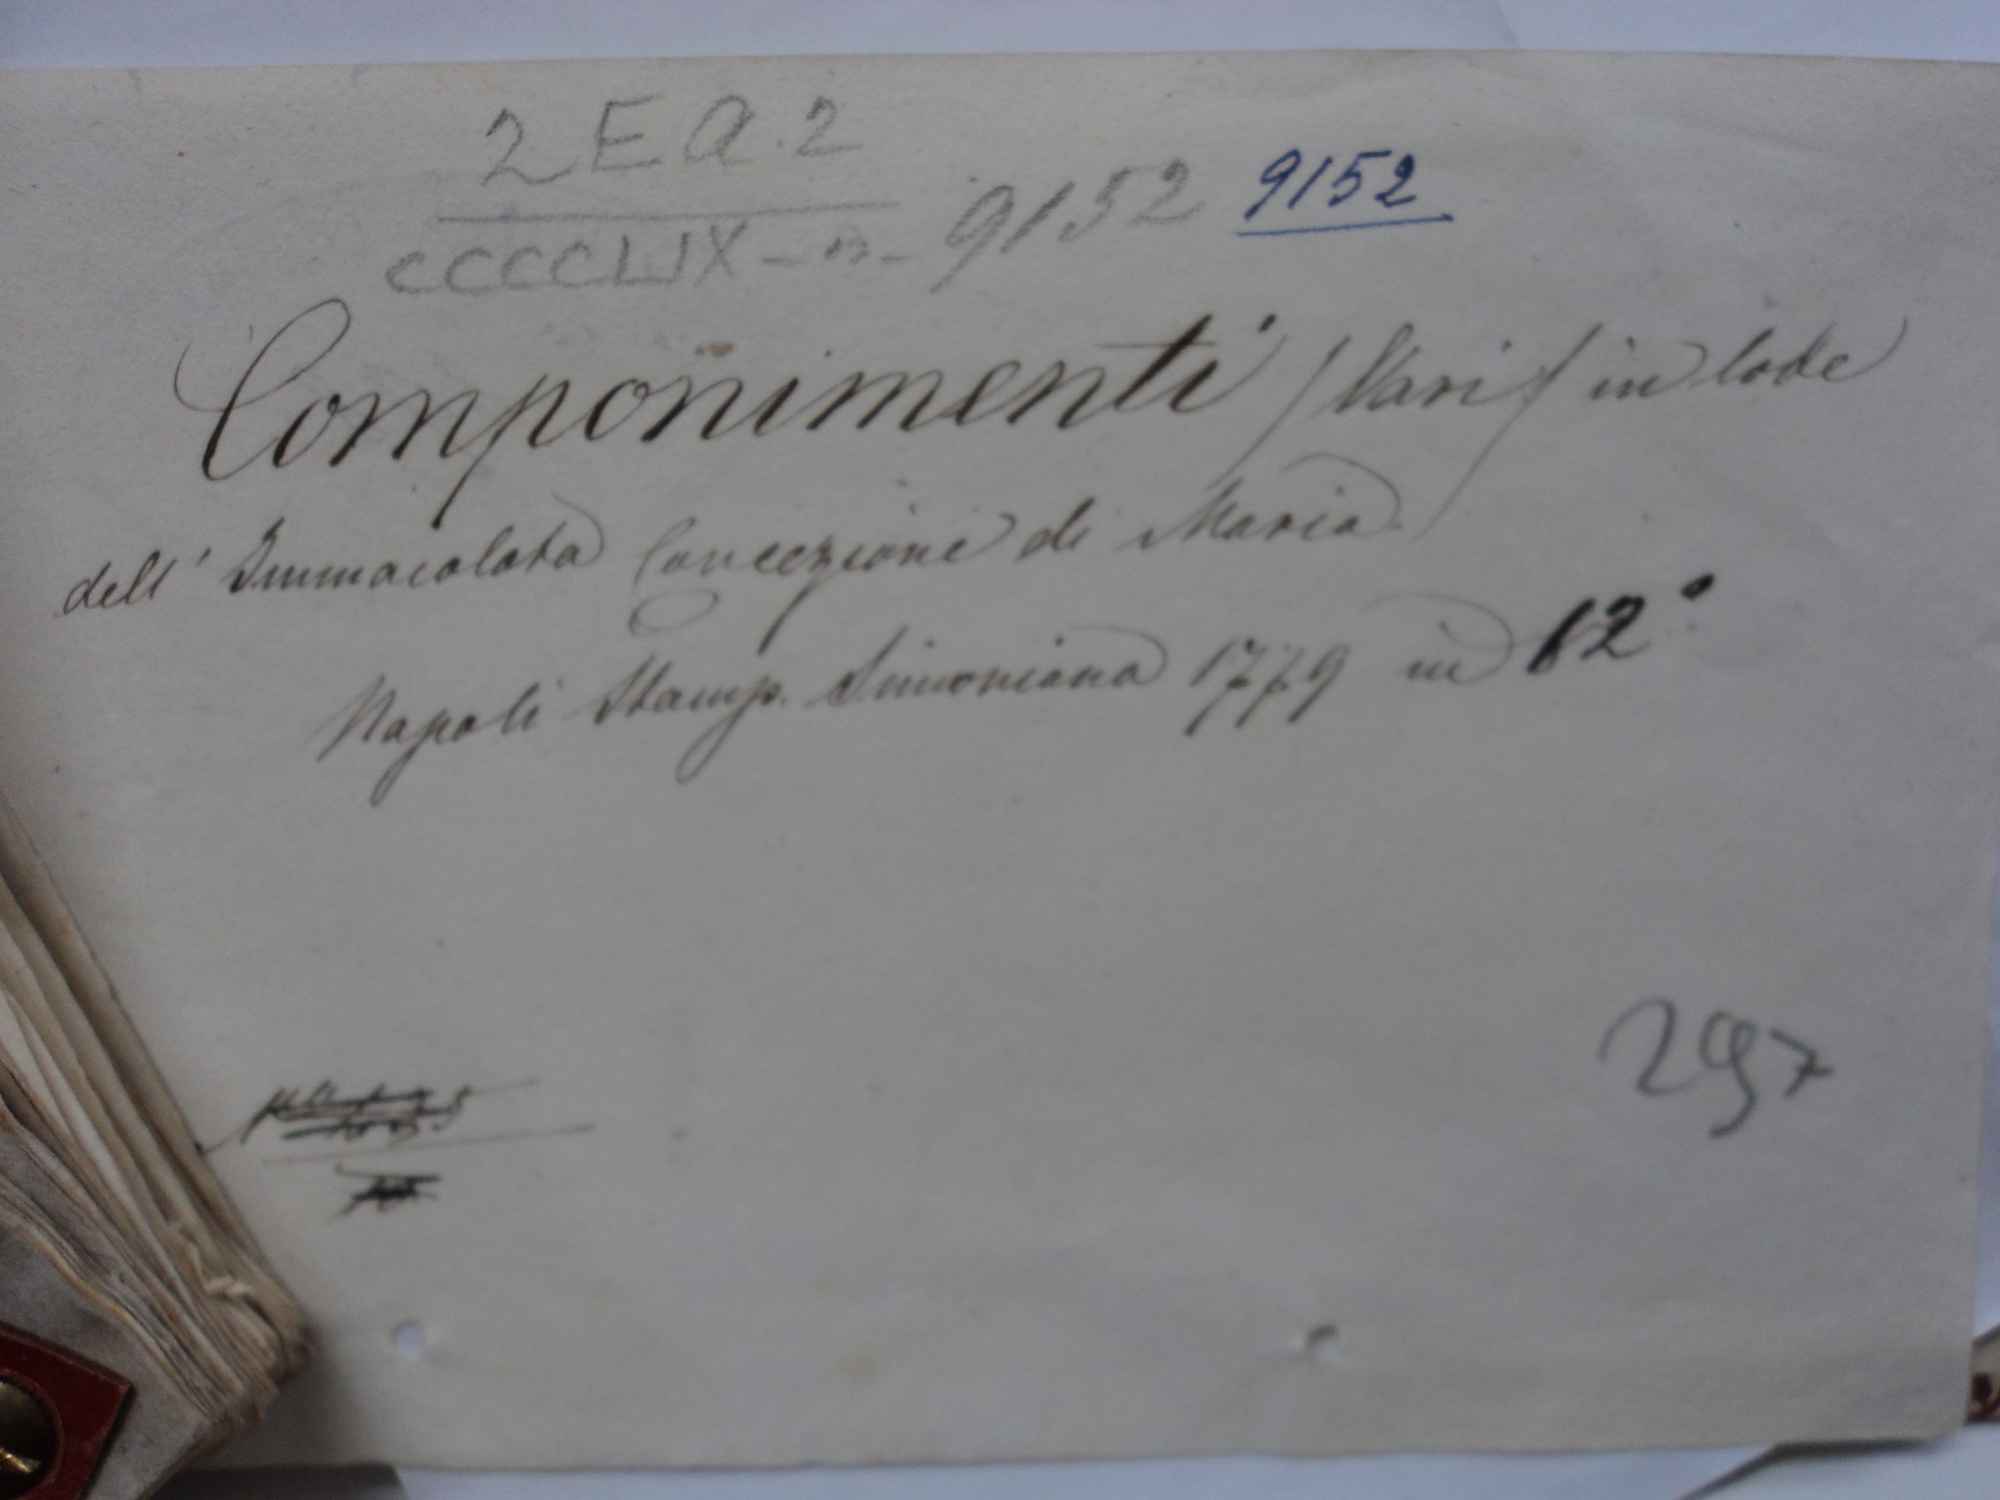 2 E a. 2
CCCCLIX - n - 9152 9152
Componimenti / Vari / in lode
dell' Immacolata Concezione di Maria
Napoli Stamp. Simoniana 1779 in 12°
297